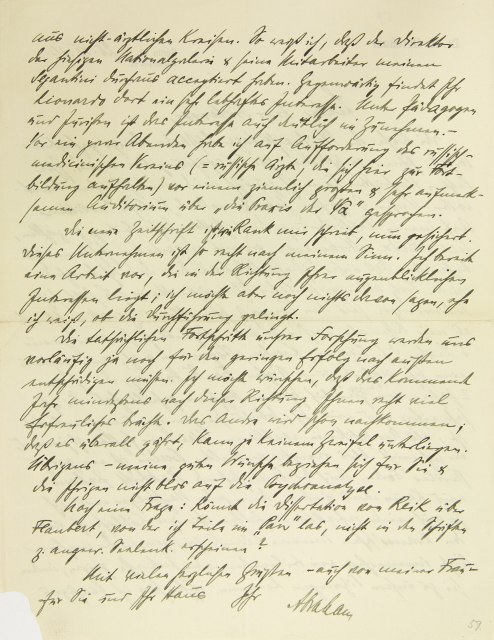 aus nicht-ärztlichen Kreisen. So weiß ich, daß der Direktor
der hiesigen Nationalgalerie & seine Mitarbeiter meinen
Segantini durchaus acceptiert haben. Gegenwärtig findet Ihr
Lionardo dort ein sehr lebhaftes Interesse. Unter Pädagogen
und Juristen ist das Interesse auch deutlich im Zunehmen. –
Vor ein paar Abenden habe ich auf Aufforderung des russisch-
medicinischen Kreises (= russische Ärzte, die sich hier zur Fort-
bildung aufhalten) vor einem ziemlich großen & sehr aufmerk-
samen Auditorium über „die Praxis der ΨA“ gesprochen.
Die neue Zeitschrift ist, wie Rank mir schreibt, nun gesichert.
Dieses Unternehmen ist so recht nach meinem Sinn. Ich bereite
eine Arbeit vor, die in der Richtung Ihrer augenblicklichen
Interessen liegt; ich möchte aber noch nichts davon sagen, ehe
ich weiß, ob die Durchführung gelingt.
Die tatsächlichen Fortschritte unsrer Forschung werden uns
vorläufig ja noch für den geringen Erfolg nach außen
entschädigen müssen. Ich möchte wünschen, daß das kommende
Jahr mindestens nach dieser Richtung Ihnen recht viel
Erfreuliches bringt. Das Andre wird schon nachkommen;
daß es überall gährt, kann ja keinem Zweifel unterliegen.
Übrigens – meine guten Wünsche beziehen sich für Sie &
die Ihrigen nicht blos auf die Psychoanalyse.
Noch eine Frage: Könnte die Dissertation von Reik über
Flaubert, von der ich Teile im „Pan“ las, nicht in den Schriften
z. angew. Seelenk. erscheinen?
Mit vielen herzlichen Grüßen – auch von meiner Frau –
für Sie und Ihr Haus Ihr Abraham